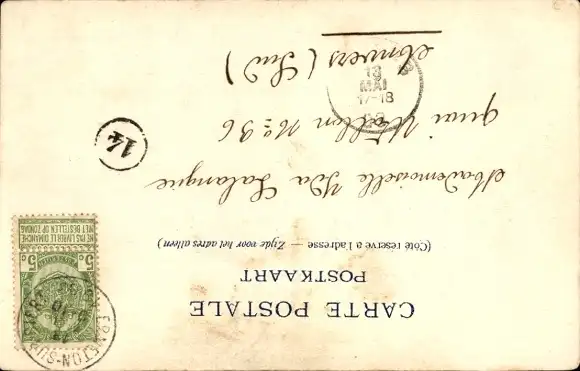 CARTE POSTALE
POSTKAART
(Côté réservé à l'adresse — Zijde voor het adres alleen)
Mademoiselle Ida Lalangue
quai Wallon No 36
Anvers (Sud)
13
MAI
17-18
14
5c 5c
NE PAS LIVRER LE DIMANCHE
NIET BESTELLEN OP ZONDAG